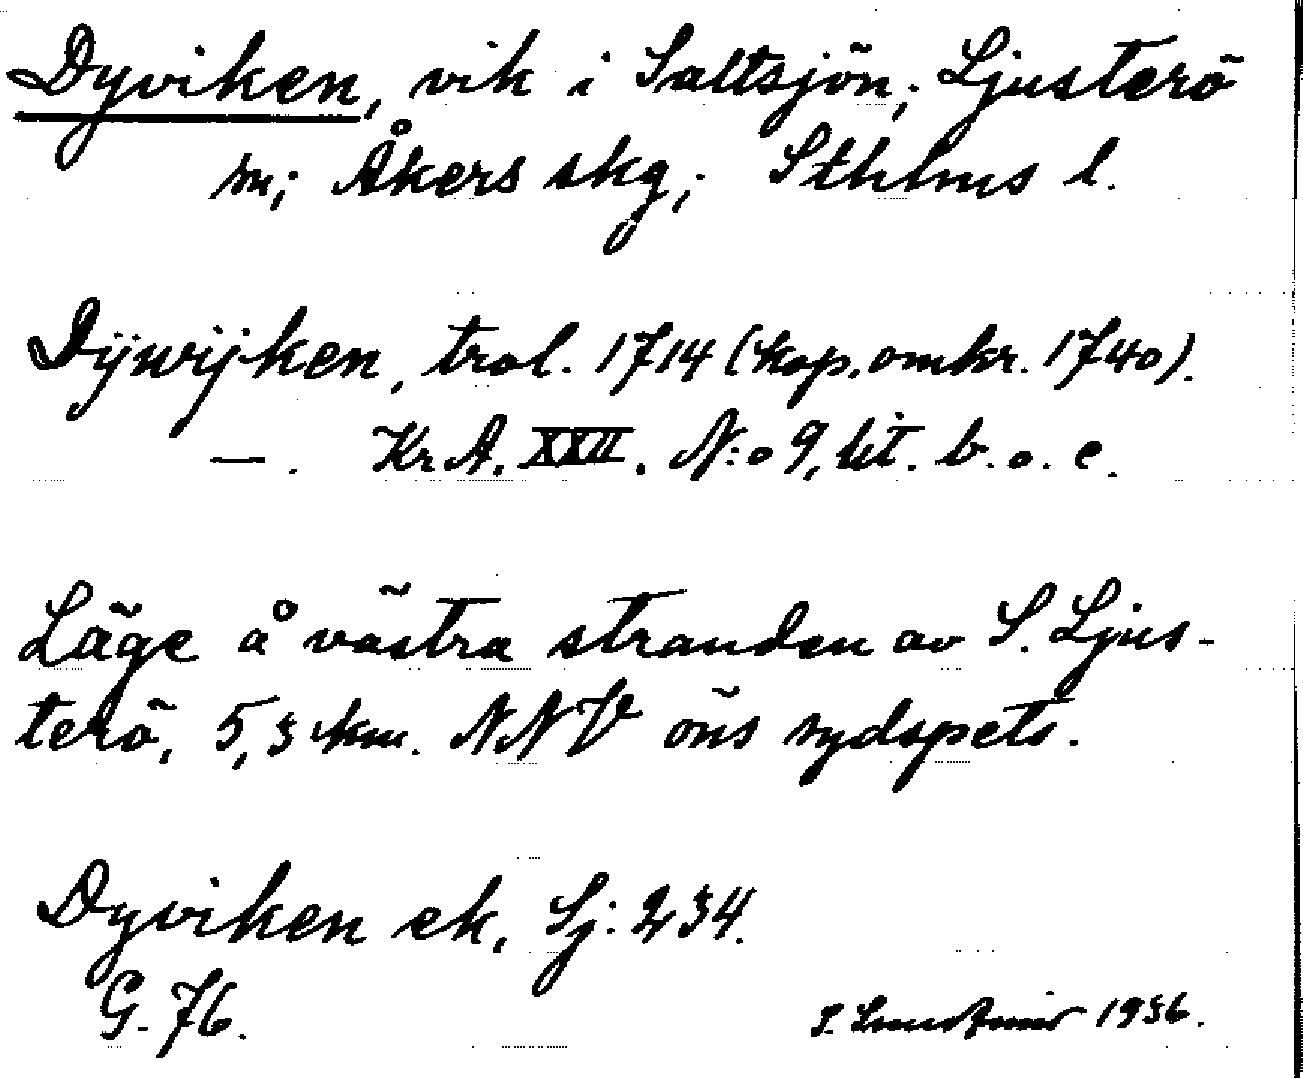 Dyviken, vik i Saltsjön; Ljusterö
sn; Åkers skg; Sthlms l.
Dijwijken, trol. 1714 (kop. omkr. 1740).
— . Kr A. XXII. N:o 9, lit. b. o. e.
Läge å västra stranden av S. Ljus-
terö, 5,3 km. NNV öns sydspets.
Dyviken ek, Sj: 234.
G. 76.
1936.